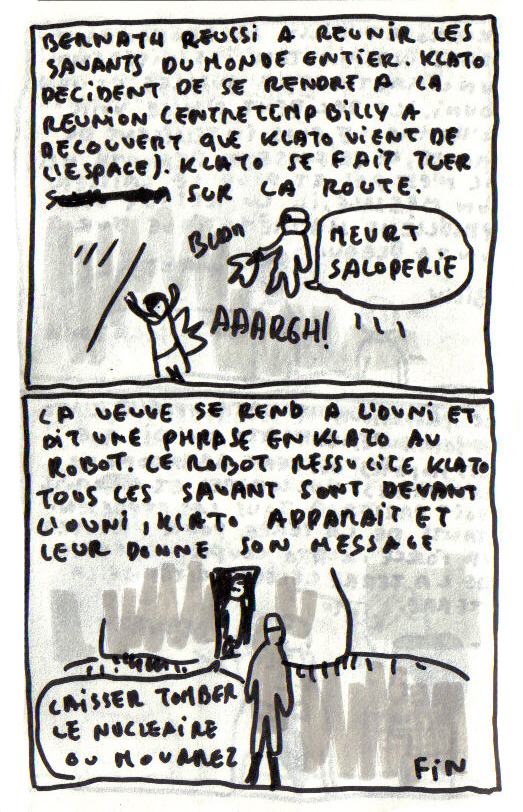 BERNATH REUSSI A REUNIR LES
SAVANTS DU MONDE ENTIER. KLATO
DECIDENT DE SE RENDRE A LA
REUNION (ENTRETEMP BILLY A
DECOUVERT QUE KLATO VIENT DE
L'ESPACE). KLATO SE FAIT TUER
SUR LA ROUTE.
BUDA
MEURT
SALOPERIE
AAARGH!
LA VEUVE SE REND A L'OUNI ET
DIT UNE PHRASE EN KLATO AU
ROBOT. LE ROBOT RESSUCITE KLATO
TOUS LES SAVANT SONT DEVANT
L'OUNI, KLATO APPARAIT ET
LEUR DONNE SON MESSAGE
LAISSER TOMBER
LE NUCLEAIRE
OU MOURREZ
FIN